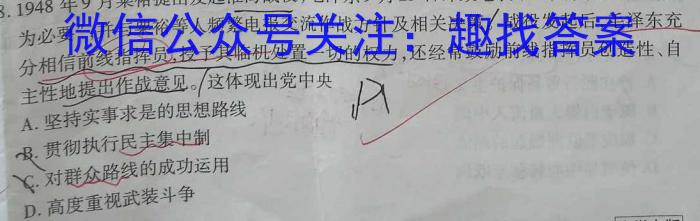 8. 1948年9月粟裕提出发起淮海战役
为必要
微信公众号关注：趣找答案
毛泽东充
分相信前线指挥员,授予其临机处置一切的权力,还经常鼓励前线指挥员创造性、自
主性地提出作战意见。这体现出党中央
A
A. 坚持实事求是的思想路线
B. 贯彻执行民主集中制
C. 对群众路线的成功运用
D. 高度重视武装斗争